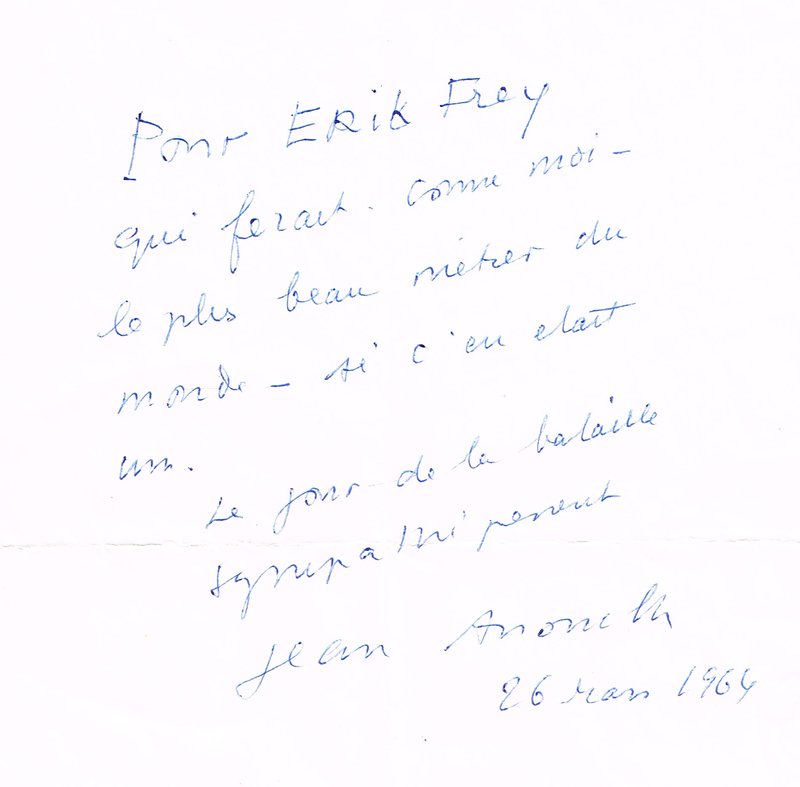 Pour ERik Frey
qui ferait - comme moi -
le plus beau métier du
monde - si c'en etait
un.
Le jour de la bataille
sympathiquement
Jean Anouilh
26 mars 1964